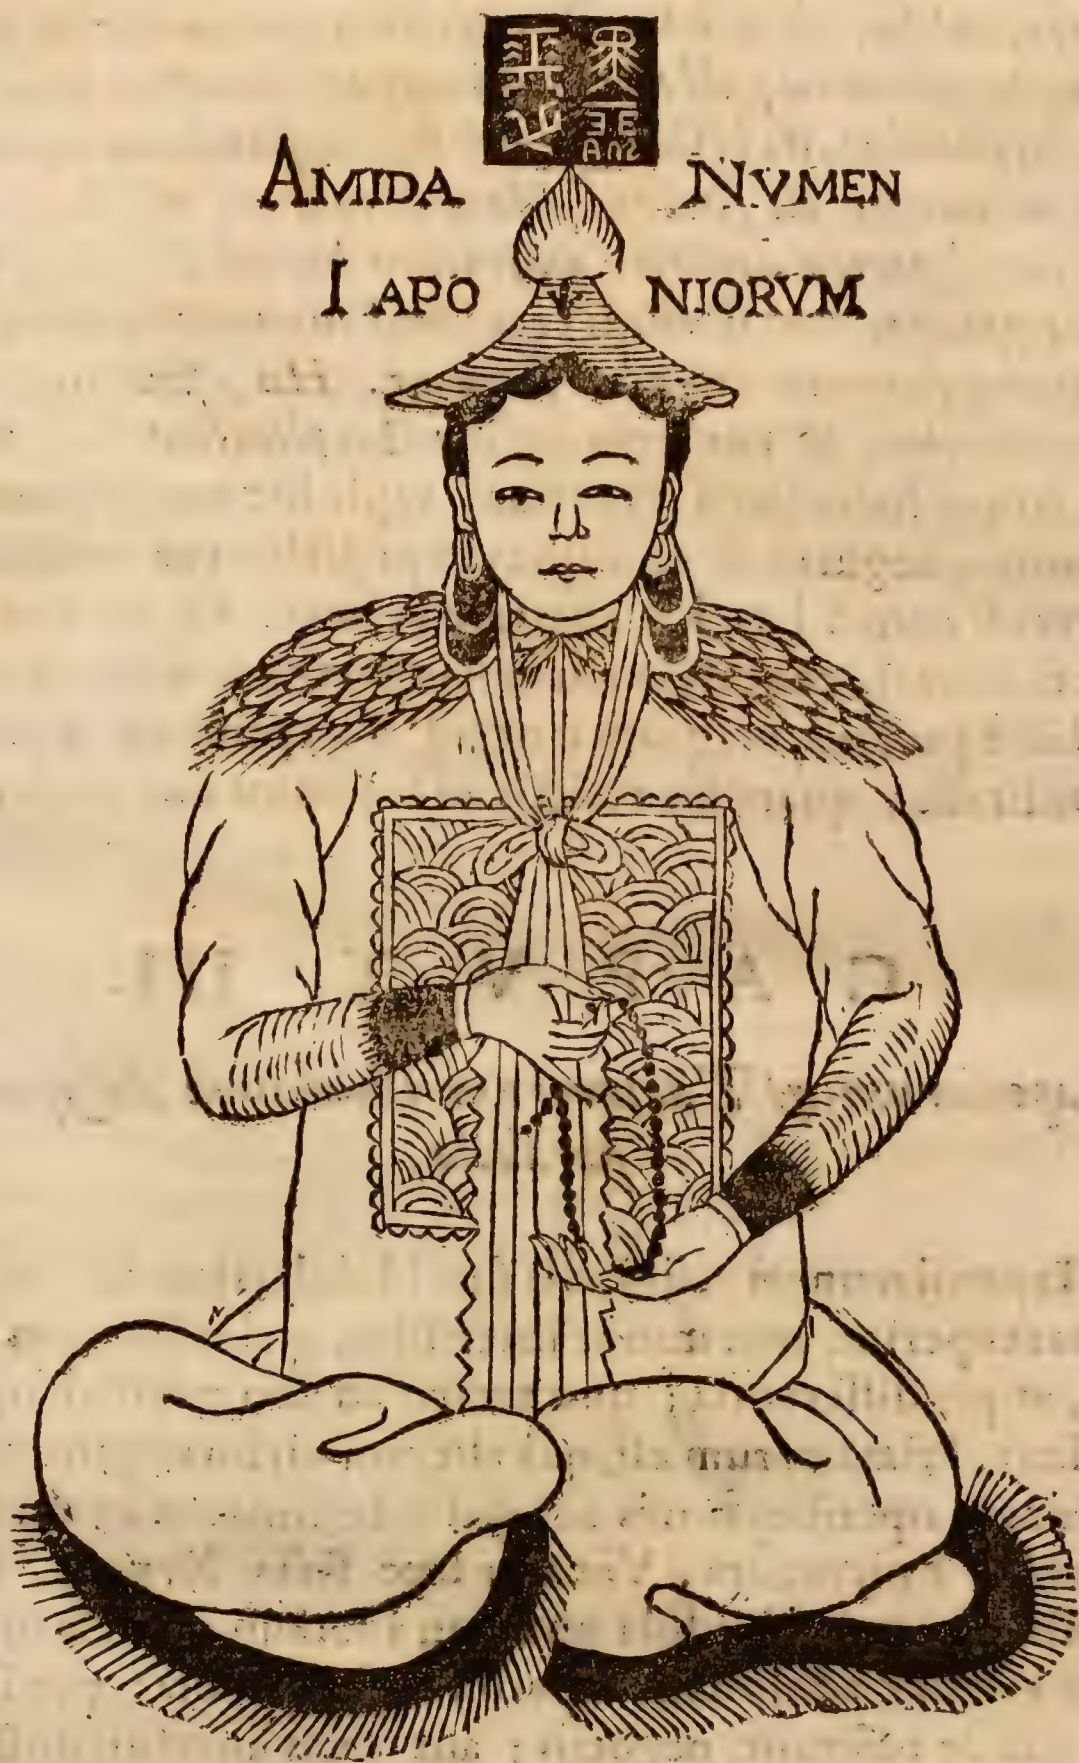 AMIDA NVMEN
IAPO NIORVM